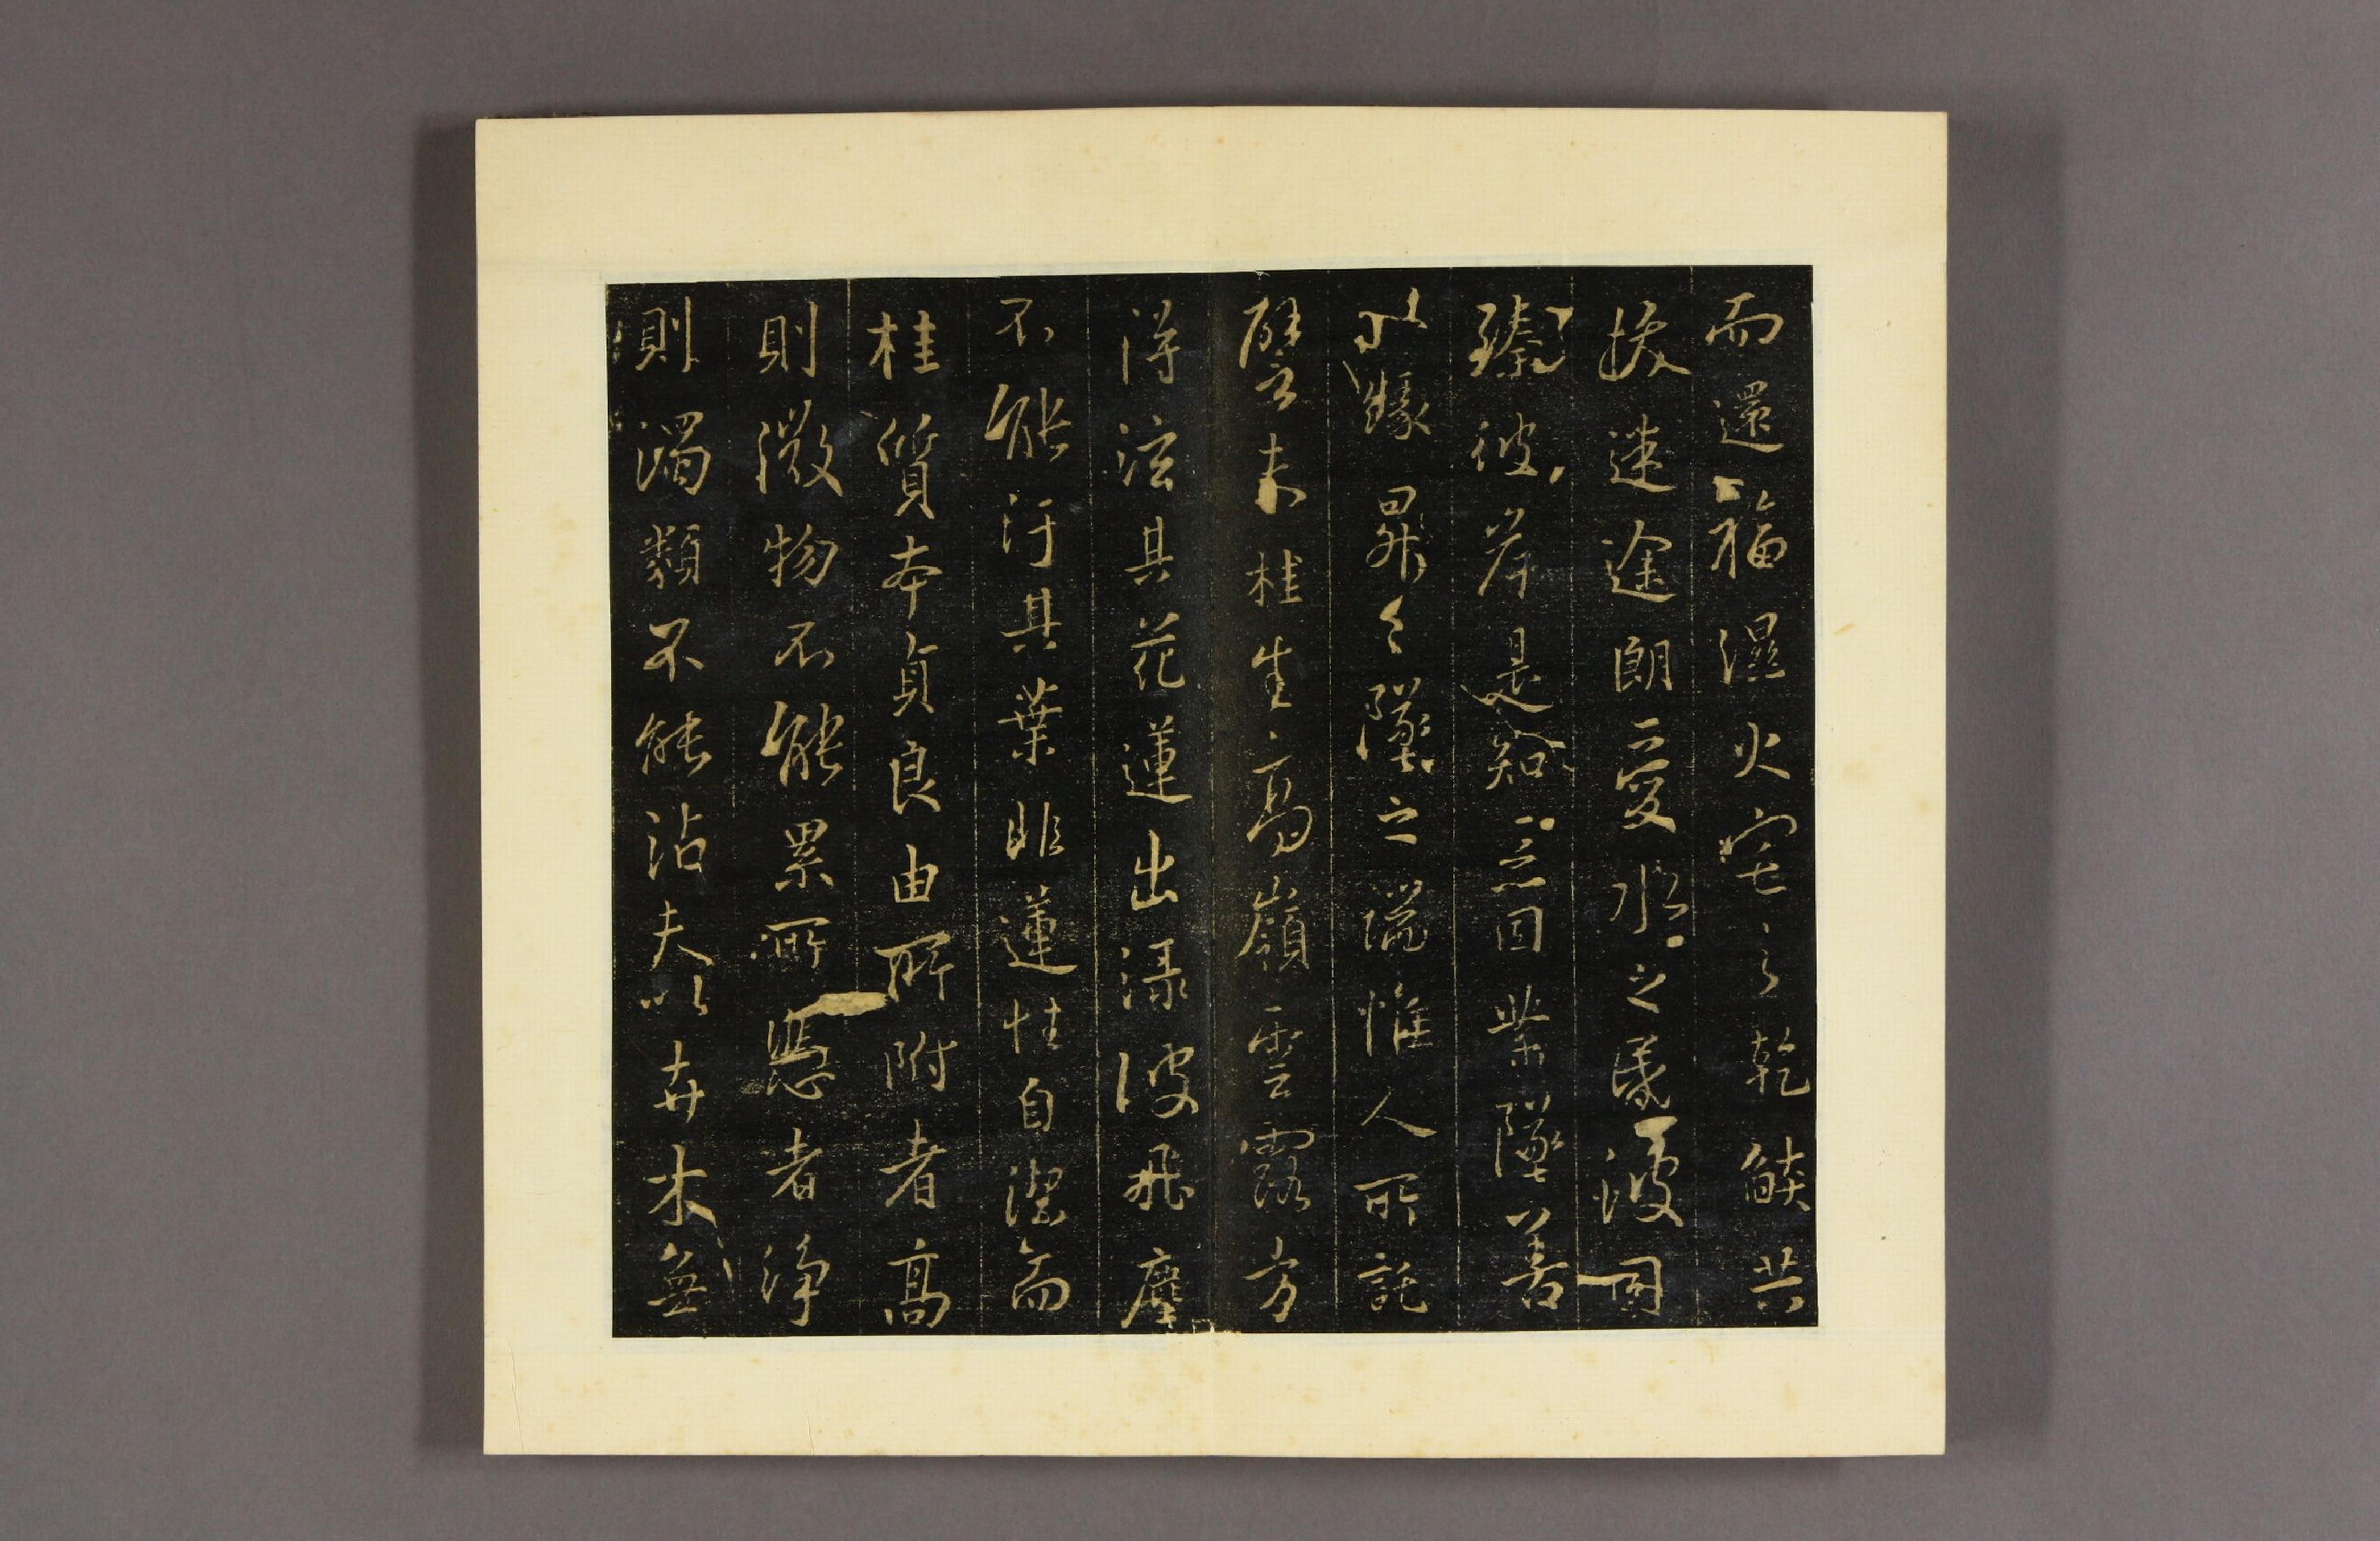 而還福濕火宅之乾燄共
拔迷途朗愛水之昏波同
臻彼岸是知惡因業墜善
以緣昇々墜之端惟人所託
譬夫桂生高嶺雲露方
得泫其花蓮出淥波飛塵
不能汙其葉非蓮性自潔而
桂質本貞良由所附者高
則微物不能累所憑者淨
則濁類不能沾夫以卉木無